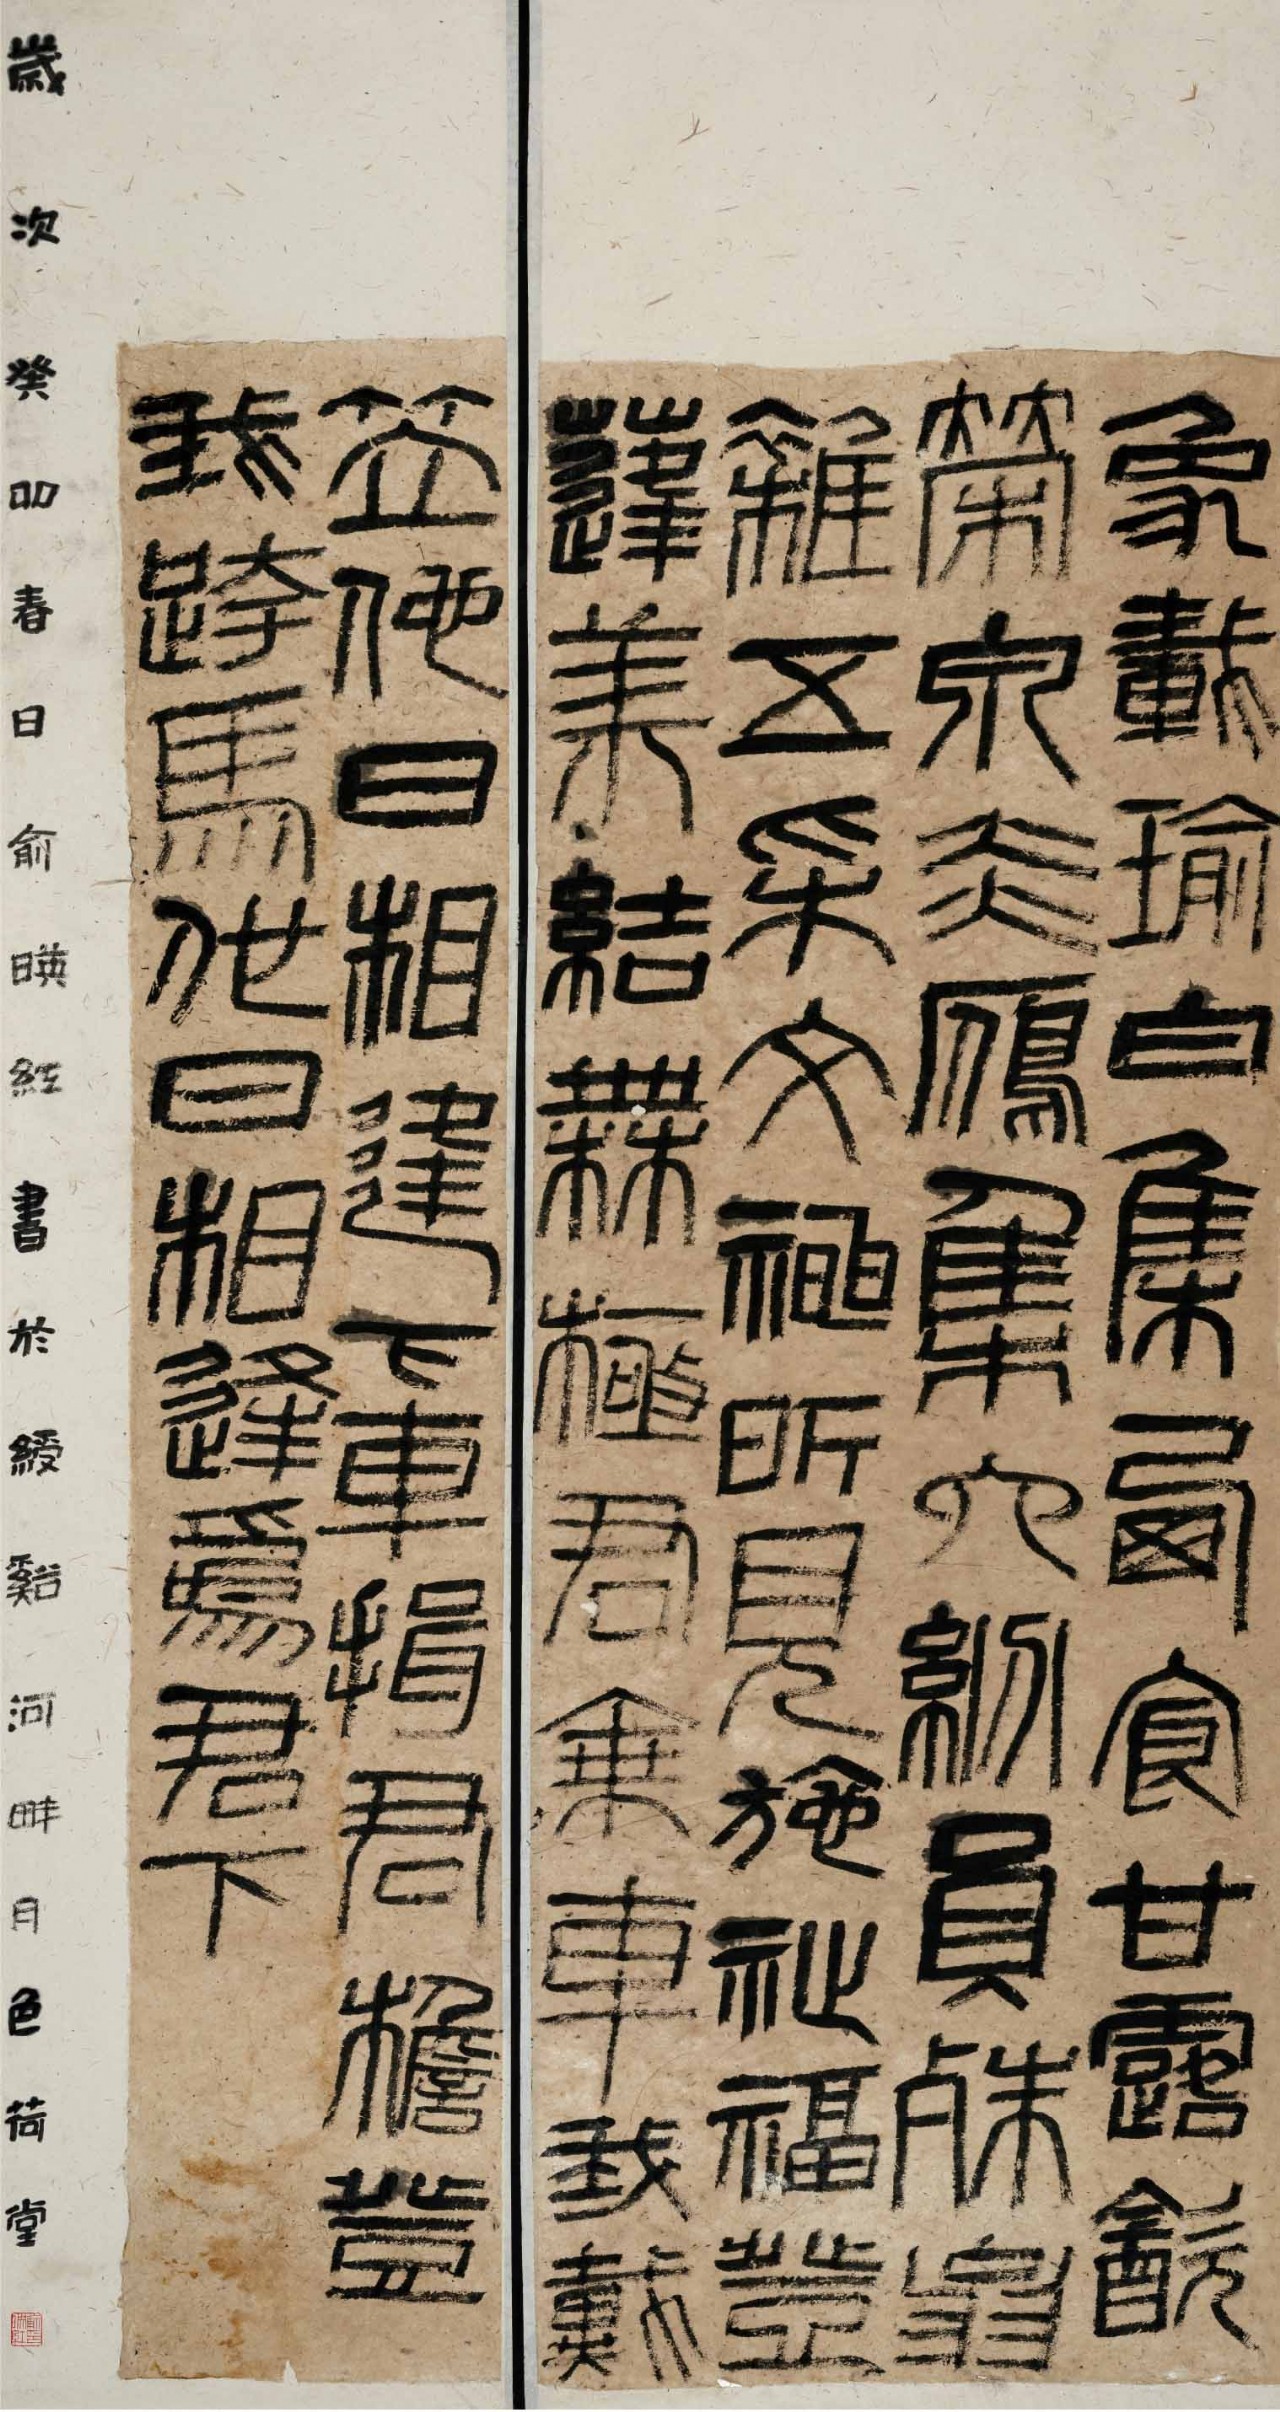 象載瑜白集西食甘露飲
榮泉赤鴈集六紛員殊翁
雜五采文神所見施祉福登
蓬萊結無極君乘車我戴
笠他日相逢下車揖君檐登
我跨馬他日相逢爲君下
歲次癸卯春日俞暎紅書於綬谿河畔月色荷堂